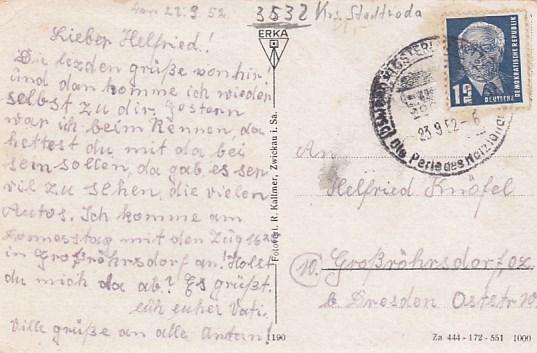 den 22.9.52
3532 Krs. Stadtroda
Lieber Helfried!
Die lezden grüße von hir
und dan komme ich wieder
selbst zu dir. Gestern
war ich beim Rennen, da
hettest du mit da bei
sein sollen, da gab es ser
vil zu sehen, die vielen
Autos. Ich komme am
Donnesstag mit den Zug 16
in Großröhrsdorf an! Holst
du mich da ab? Es grüßt
euh euher Vati.
Ville grüße an alle Antan!
ERKA
Fotoverl. R. Kallmer, Zwickau i. Sa.
1190
12
DEUTSCHE
DEMOKRATISCHE REPUBLIK
23.9.52
Die Perle des Holzland
An
Helfried Knöfel
(10) Großröhrsdorf oz
b. Dresden Oststr 10
Za 444-172-551 1000